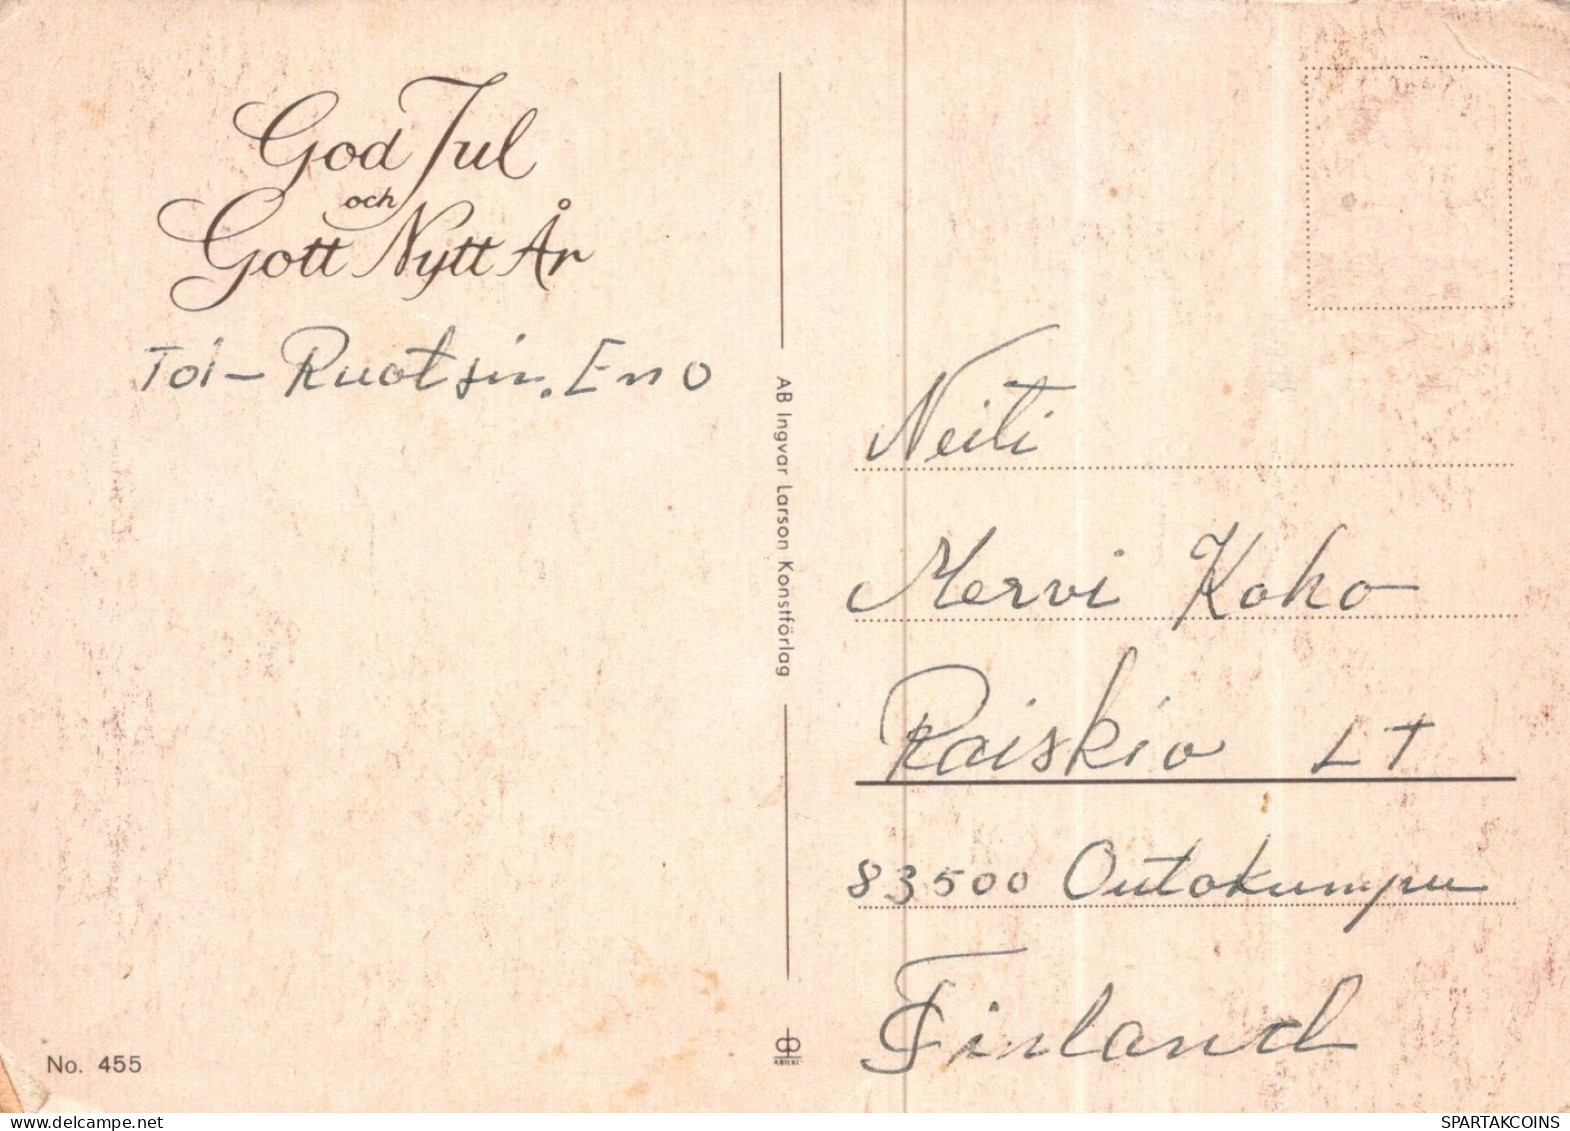 God Jul
och
Gott Nytt År
Toi- Ruotsin. Eno
AB Ingvar Larson Konstförlag
Neiti
Mervi Koho
Raiskio LT
83500 Outokumpu
Finland
No. 455
delcampe.net
SPARTAKCOINS